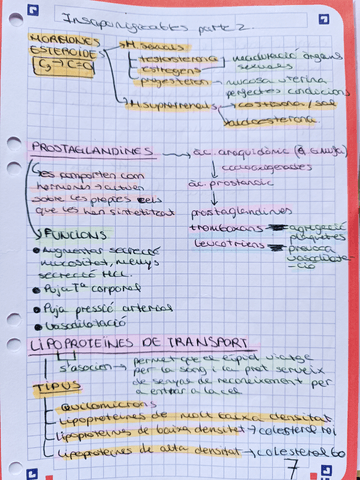 Insaponificables parte 2
HORMONES ESTEROIDES
C3 → C=O
H. sexuals
testosterona
estrogens
maduració òrgans sexuals
progesteron → mucosa uterina
perfectes condicions
H. suprarrenals → cortisona / sal
aldosterona
PROSTAGLANDINES → àc. araquidònic
ciclooxigenases
àc. prostanoic
prostaglandines
tromboxans → agregació plaquetes
leucotriens → provoca
Es comporten com
hormones → actúen
sobre les propies cèls
que les han sintetitzat
FUNCIONS
• Augmentar secreció
mucositat, menys
secreció HCl.
• Puja Tª corporal
• Puja pressió arterial
• Vasodilatació
LIPOPROTEÏNES DE TRANSPORT
s'asocien → permet que el lípid viatge
per la sang i la prot serveix
de senyal de reconeixement per
a entrar a la cèl
TIPUS
Quilomicrons
Lipoproteïnes de molt baixa densitat
Lipoproteïnes de baixa densitat → colesterol roí
Lipoproteïnes de alta densitat → colesterol bo
7